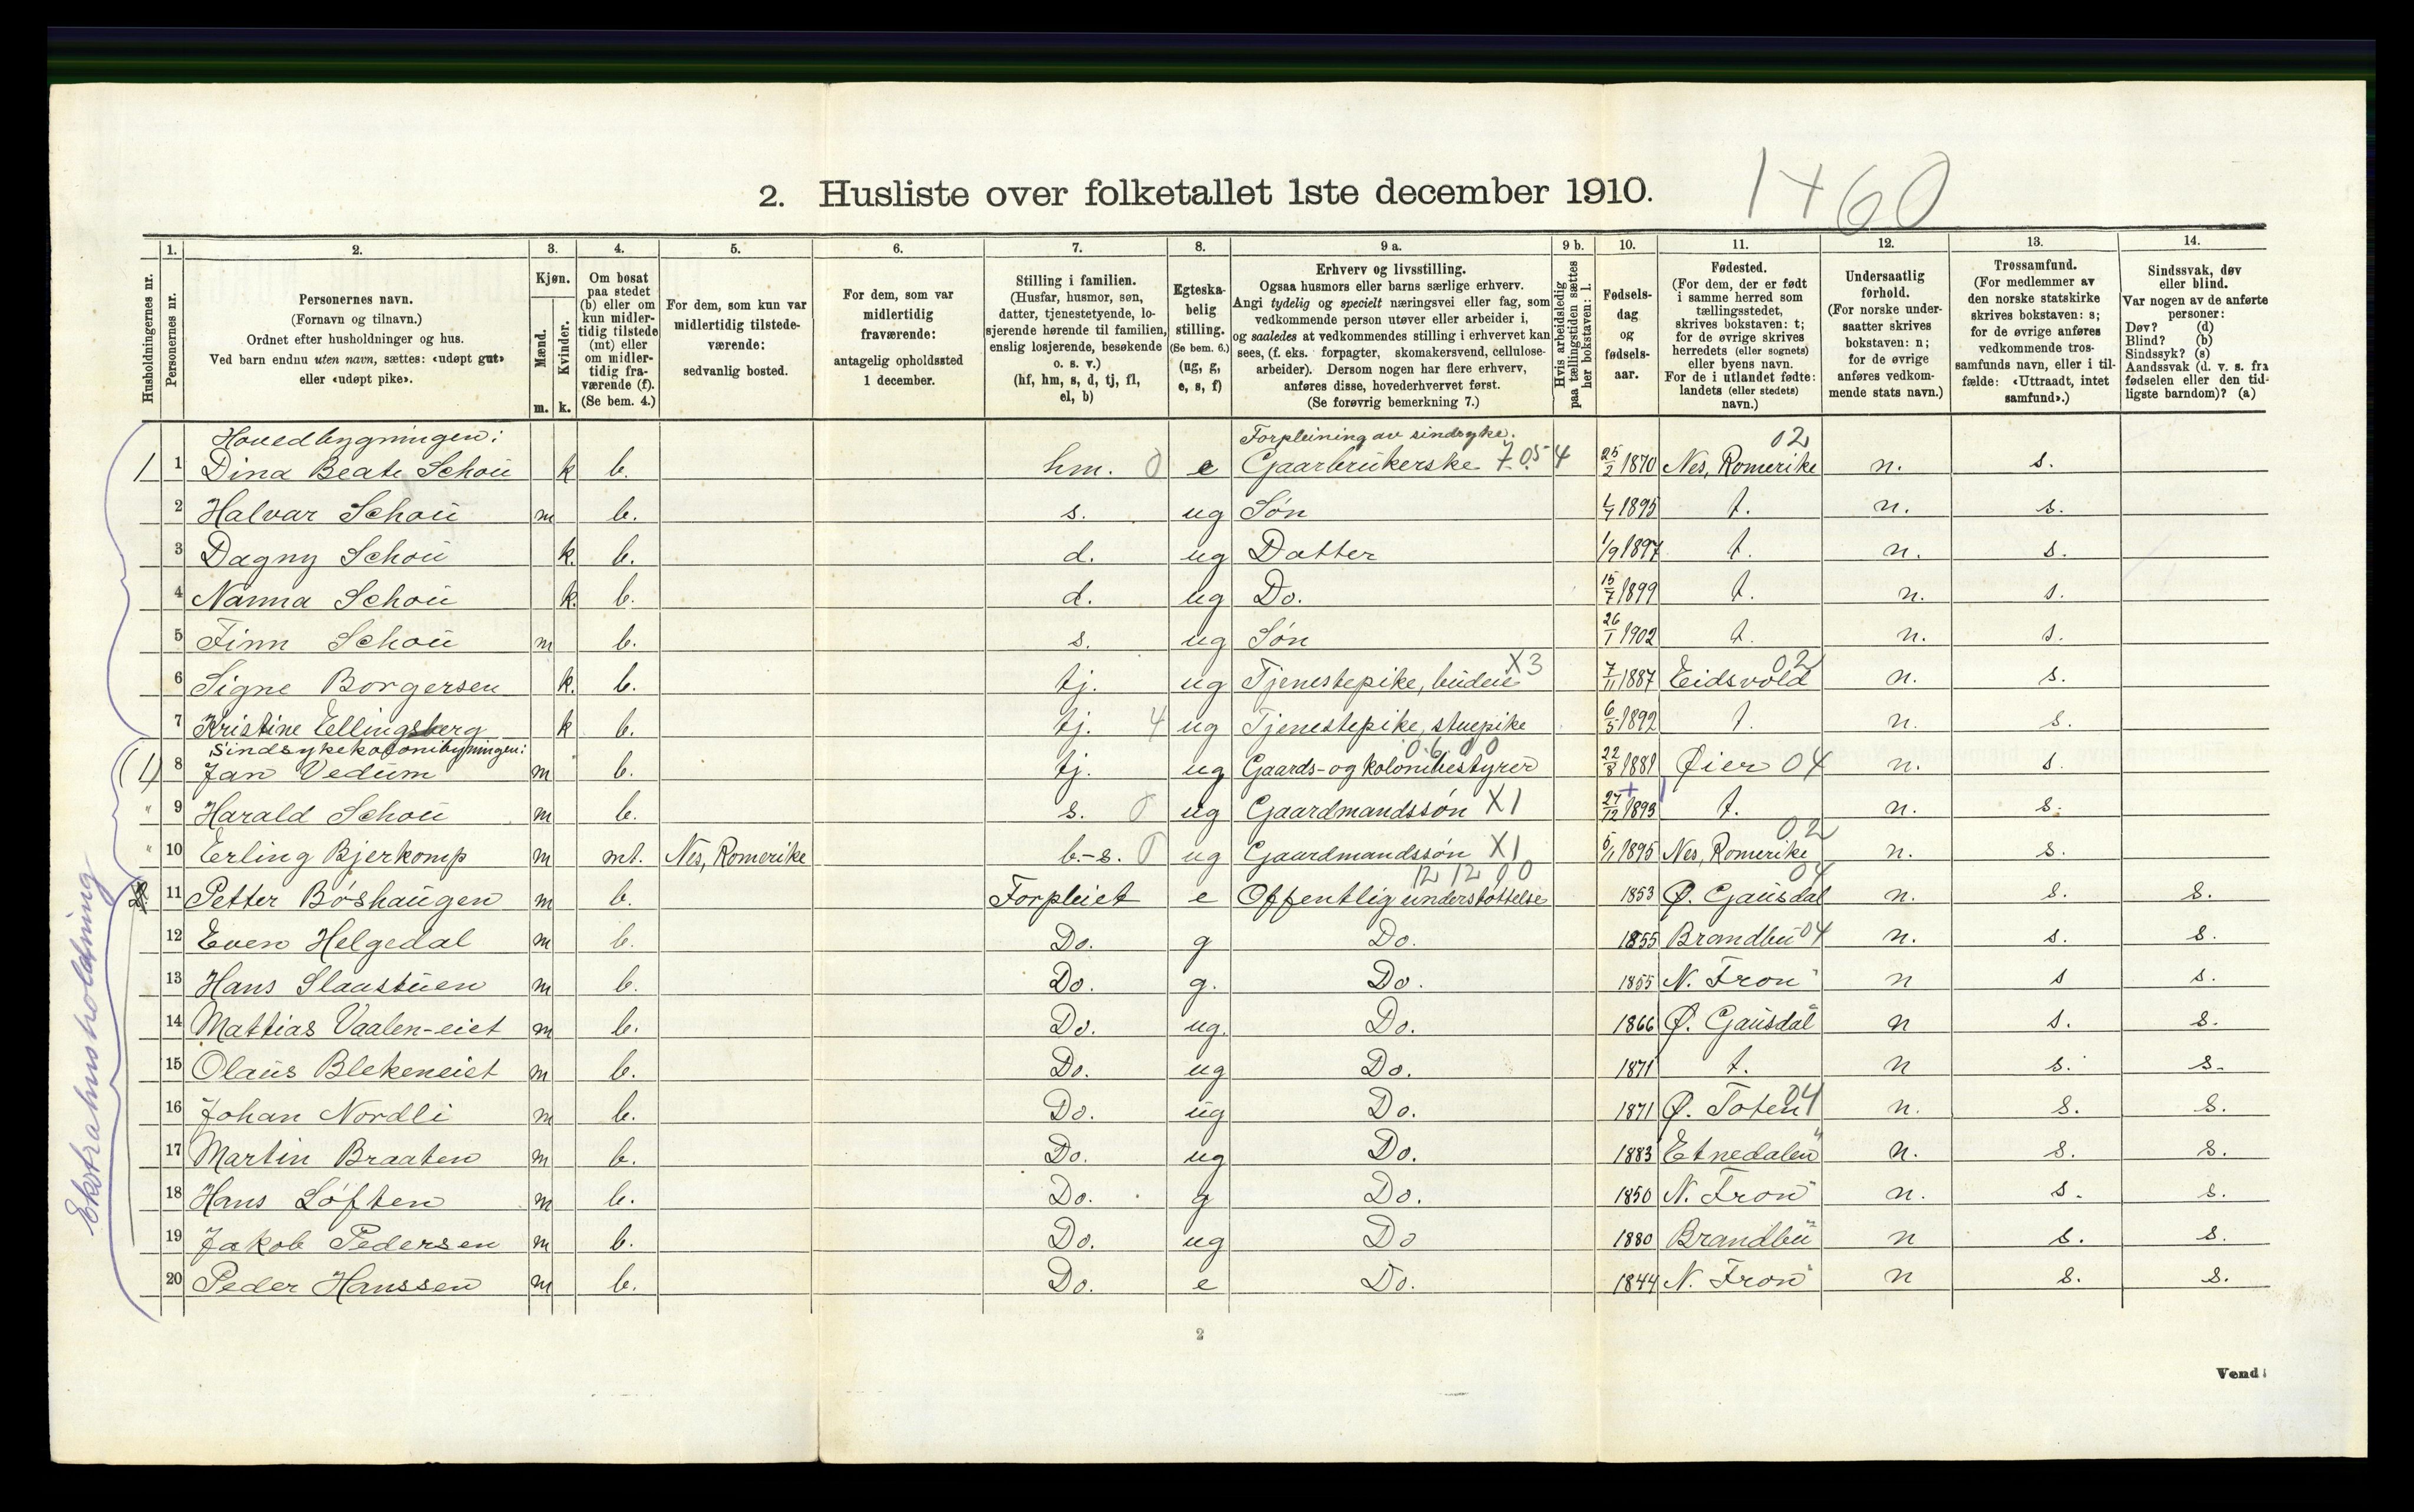 2. Husliste over folketallet 1ste december 1910.
1 + 60
Husholdningernes nr.
1. Personernes nr.
2. Personernes navn.
(Fornavn og tilnavn.)
Ordnet efter husholdninger og hus.
Ved barn endnu uten navn, sættes: «udøpt gut»
eller «udøpt pike».
3. Kjøn.
Mænd. m.
Kvinder. k.
4. Om bosat
paa stedet
(b) eller om
kun midler-
tidig tilstede
(mt) eller
om midler-
tidig fra-
værende (f).
(Se bem. 4.)
5. For dem, som kun var
midlertidig tilstede-
værende:
sedvanlig bosted.
6. For dem, som var
midlertidig
fraværende:
antagelig opholdssted
1 december.
7. Stilling i familien.
(Husfar, husmor, søn,
datter, tjenestetyende, lo-
sjerende hørende til familien,
enslig losjerende, besøkende
o. s. v.)
(hf, hm, s, d, tj, fl,
el, b)
8. Egteska-
belig
stilling.
(Se bem. 6.)
(ug, g,
e, s, f)
9 a. Erhverv og livsstilling.
Ogsaa husmors eller barns særlige erhverv.
Angi tydelig og specielt næringsvei eller fag, som
vedkommende person utøver eller arbeider i,
og saaledes at vedkommendes stilling i erhvervet kan
sees, (f. eks. forpagter, skomakersvend, cellulose-
arbeider). Dersom nogen har flere erhverv,
anføres disse, hovederhvervet først.
(Se forøvrig bemerkning 7.)
9 b. Hvis arbeidsledig
paa tællingstiden sættes
her bokstaven: l.
10. Fødsels-
dag
og
fødsels-
aar.
11. Fødested.
(For dem, der er født
i samme herred som
tællingsstedet,
skrives bokstaven: t;
for de øvrige skrives
herredets (eller sognets)
eller byens navn.
For de i utlandet fødte:
landets (eller stedets)
navn.)
12. Undersaatlig
forhold.
(For norske under-
saatter skrives
bokstaven: n;
for de øvrige
anføres vedkom-
mende stats navn.)
13. Trossamfund.
(For medlemmer av
den norske statskirke
skrives bokstaven: s;
for de øvrige anføres
vedkommende tros-
samfunds navn, eller i til-
fælde: «Uttraadt, intet
samfund».)
14. Sindssvak, døv
eller blind.
Var nogen av de anførte
personer:
Døv? (d)
Blind? (b)
Sindssyk? (s)
Aandssvak (d. v. s. fra
fødselen eller den tid-
ligste barndom)? (a)
Hovedbygningen: Forpleining av sindsyke. 02
1 1 Dina Beate Schou k b. hm. 0 e Gaarbrukerske 7.05 4 25/2 1870 Nes, Romerike n. s.
2 Halvar Schou m b. s. ug Søn 1/7 1895 t. n. s.
3 Dagny Schou k. b. d. ug Datter 1/9 1897 t. n. s.
4 Nanna Schou k. b. d. ug Do. 15/7 1899 t. n. s.
5 Finn Schou m b. s. ug Søn 26/1 1902 t. n. s.
6 Signe Borgersen k. b. tj. ug Tjenestepike, budeie X3 7/11 1887 Eidsvold 02 n. s.
7 Kristine Ellingsberg k b. tj. 4 ug Tjenestepike, stuepike 6/5 1892 t. n. s.
Sindsykekolonibyningen: 0.6.00
(1) 8 Jan Vedum m b. tj. ug Gaards- og kolonibestyrer 22/8 1881 Øier 04 n. s.
" 9 Harald Schou m b. s. 0 ug Gaardmandssøn X1 27/12 1893 t. n. s.
" 10 Erling Bjerkomp m mt. Nes, Romerike b.-s. 0 ug Gaardmandssøn X1 5/11 1895 Nes, Romerike 02 n. s.
11 Petter Bøshaugen m b. Forpleiet e Offentlig understøttelse 12 12 00 1853 Ø. Gausdal 04 n. s. s.
12 Even Helgedal m b. Do. g Do. 1855 Brandbu 04 n. s. s.
13 Hans Slaastuen m b. Do. g. Do. 1855 N. Fron " n s s.
14 Mattias Vaalen-eiet m b. Do. ug. Do. 1866 Ø. Gausdal " n s. s.
15 Olaus Blekeneiet m b. Do. ug Do. 1871 t. n s. s.
16 Johan Nordli m b. Do. ug Do. 1871 Ø. Toten 04 n. s. s.
17 Martin Braaten m b. Do. ug Do. 1883 Etnedalen " n. s. s.
18 Hans Løften m b. Do. g Do. 1850 N. Fron " n. s. s.
19 Jakob Pedersen m b. Do. ug Do 1880 Brandbu " n s. s.
20 Peder Hanssen m b. Do. e Do. 1844 N. Fron " n s. s.
Ekstrahusholdning
2
Vend!